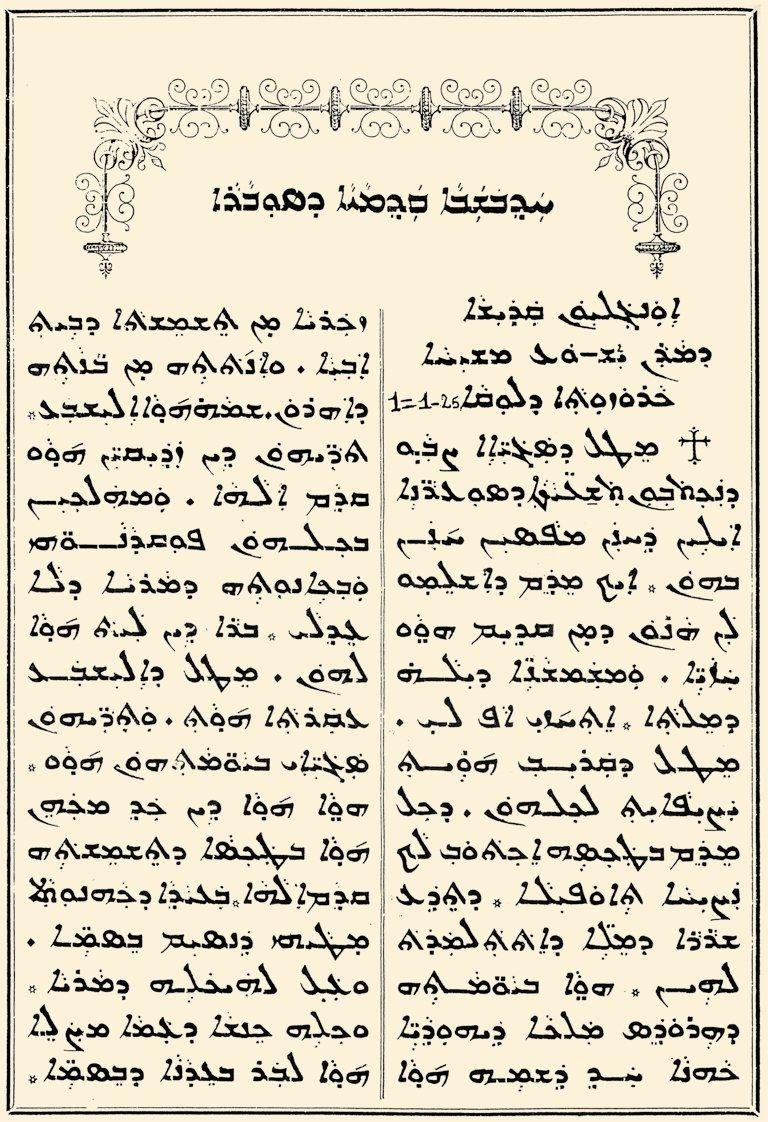 ܚܕܒܫܒܐ ܩܕܡܝܐ ܕܣܘܒܪܐ
ܐܘܢܓܠܝܘܢ ܩܕܝܫܐ
ܕܡܪܢ ܝܫܘܥ ܡܫܝܚܐ
ܟܪܘܙܘܬܐ ܕܠܘܩܐ 1=1-25
☩ ܡܛܠ ܕܣܓܝ̈ܐܐ ܨܒܘ
ܕܢܟܬܒܘܢ ܬܫܥ̈ܝܬܐ ܕܣܘܥܪ̈ܢܐ
ܐܝܠܝܢ ܕܚܢܢ ܡܦܣܝܢ ܚܢܢ
ܒܗܘܢ ܆ ܐܝܟ ܡܕܡ ܕܐܫܠܡܘ
ܠܢ ܗܢܘܢ ܕܡܢ ܩܕܝܡ ܗܘܘ
ܚܙܝ̈ܐ . ܘܡܫܡܫܢ̈ܐ ܕܝܠܗ
ܕܡܠܬܐ ܆ ܐܬܚܙܝ ܐܦ ܠܝ .
ܡܛܠ ܕܩܪܝܒ ܗܘܝܬ
ܝܨܝܦܐܝܬ ܠܟܠܗܘܢ . ܕܟܠ
ܡܕܡ ܒܛܟܣܗ ܐܟܬܘܒ ܠܟ
ܢܨܝܚܐ ܬܐܘܦܝܠܐ ܆ ܕܬܕܥ
ܫܪܪܐ ܕܡ̈ܠܐ ܕܐܬܬܠܡܕܬ
ܠܗܝܢ ܆ ܗܘܐ ܒܝܘ̈ܡܬܗ
ܕܗܪܘܕܣ ܡܠܟܐ ܕܝܗܘܕܝ̈ܐ
ܟܗܢܐ ܚܕ ܕܫܡܗ ܗܘܐ
ܙܟܪܝܐ ܡܢ ܬܫܡܫܬܐ ܕܒܝܬ
ܐܒܝܐ . ܘܐܢܬܬܗ ܡܢ ܒܢ̈ܬܗ
ܕܐܗܪܘܢ. ܫܡܗ ܗܘܐ ܐܠܝܫܒܥ܆
ܬܪ̈ܝܗܘܢ ܕܝܢ ܙܕܝܩܝ̈ܢ ܗܘܘ
ܩܕܡ ܐܠܗܐ . ܘܡܗܠܟܝܢ
ܒܟܠܗܘܢ ܦܘܩܕܢܘ̈ܗܝ
ܘܒܟܐܢܘܬܗ ܕܡܪܝܐ ܕܠܐ
ܥܕܠܝ ܆ ܒܪܐ ܕܝܢ ܠܝܬ ܗܘܐ
ܠܗܘܢ . ܡܛܠ ܕܐܠܝܫܒܥ
ܥܩܪܬܐ ܗܘܬ . ܘܬܪ̈ܝܗܘܢ
ܣܓܝ̈ܐܝ ܒܝܘ̈ܡܬܗܘܢ ܗܘܘ ܆
ܗܘܐ ܗܘܐ ܕܝܢ ܟܕ ܡܟܗܢ
ܗܘܐ ܒܛܟܣܐ ܕܬܫܡܫܬܗ
ܩܕܡ ܐܠܗܐ܆ ܒܥܝܕܐ ܕܟܗܢܘܬܐ
ܡܛܝܗܝ ܕܢܣܝܡ ܒܣܡ̈ܐ .
ܘܥܠ ܠܗܝܟܠܗ ܕܡܪܝܐ ܆
ܘܟܠܗ ܟܢܫܐ ܕܥܡܐ ܡܨܠܐ
ܗܘܐ ܠܒܪ ܒܥܕܢܐ ܕܒܣܡ̈ܐ ܆